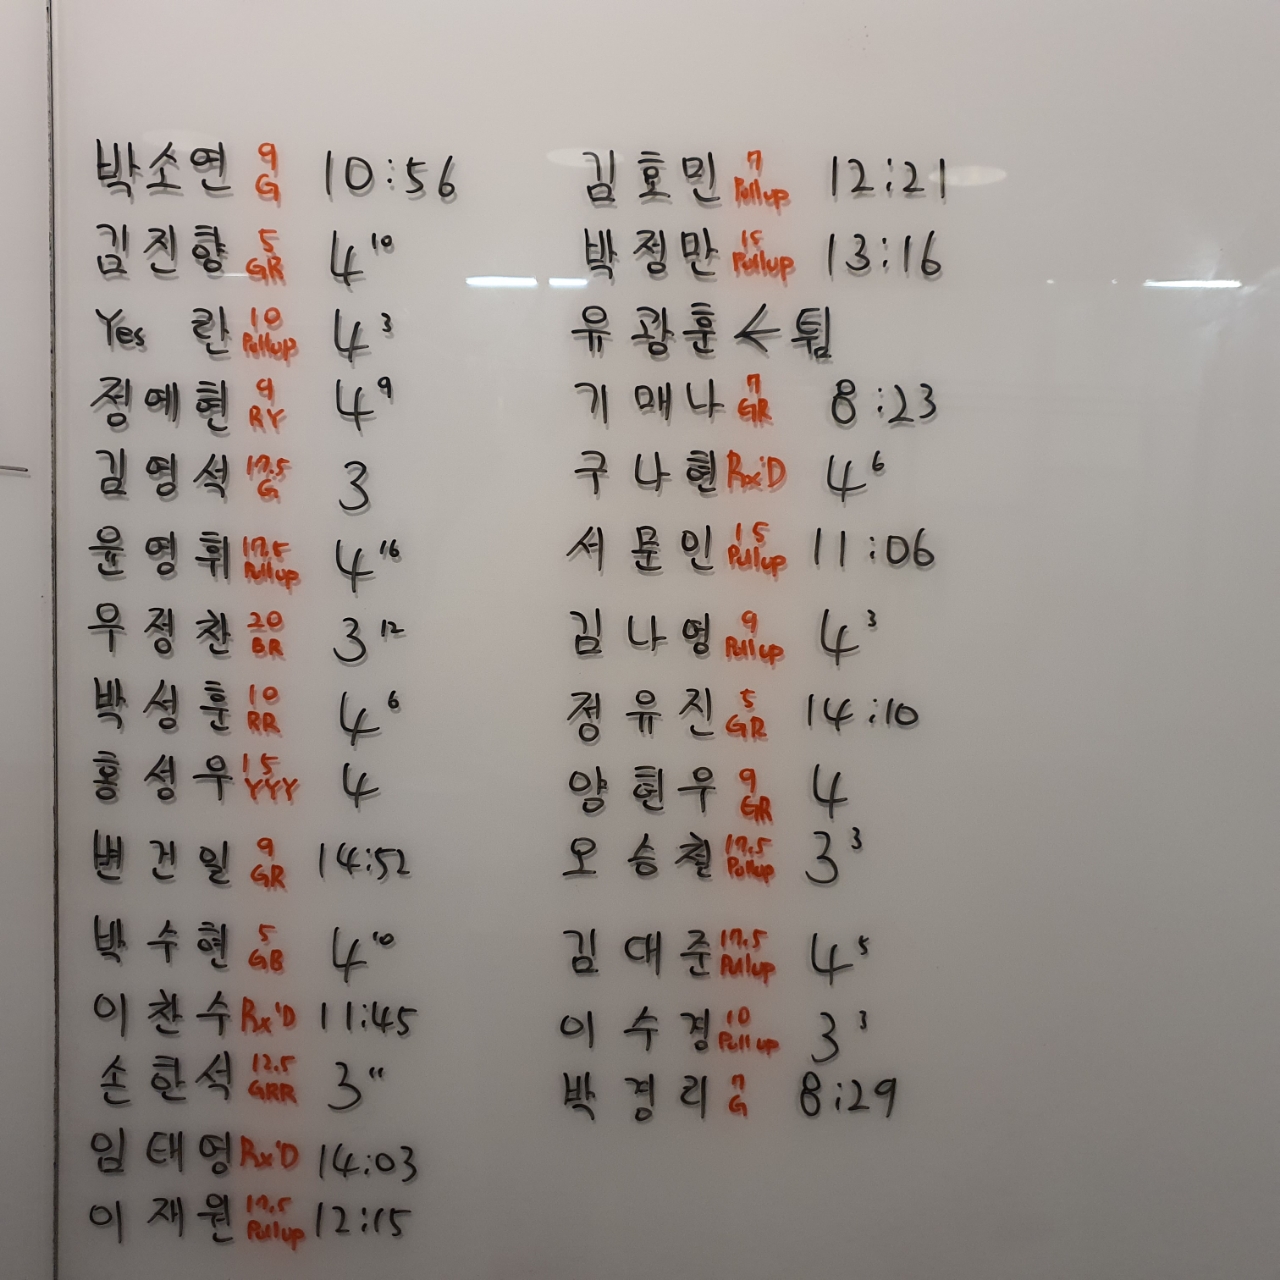 박소연 9 G 10:56
김진향 5 GR 4 10
Yes 란 10 Pullup 4 3
정예현 9 RY 4 9
김영석 17.5 G 3
윤영휘 17.5 Pullup 4 16
우정찬 20 BR 3 12
박성훈 10 RR 4 6
홍성우 15 YYY 4
변건일 9 GR 14:52
박수현 5 GB 4 10
이찬수 Rx'D 11:45
손한석 12.5 GRR 3 11
임태영 Rx'D 14:03
이재원 17.5 Pullup 12:15
김호민 7 Pullup 12:21
박정만 15 Pullup 13:16
유광훈 ← 팀
기매나 7 GR 8:23
구나현 Rx'D 4 6
서문인 15 Pullup 11:06
김나영 9 Pullup 4 3
정유진 5 GR 14:10
양현우 9 GR 4
오승철 17.5 Pullup 3 3
김대준 17.5 Pullup 4 5
이수경 10 Pullup 3 3
박경리 7 G 8:29